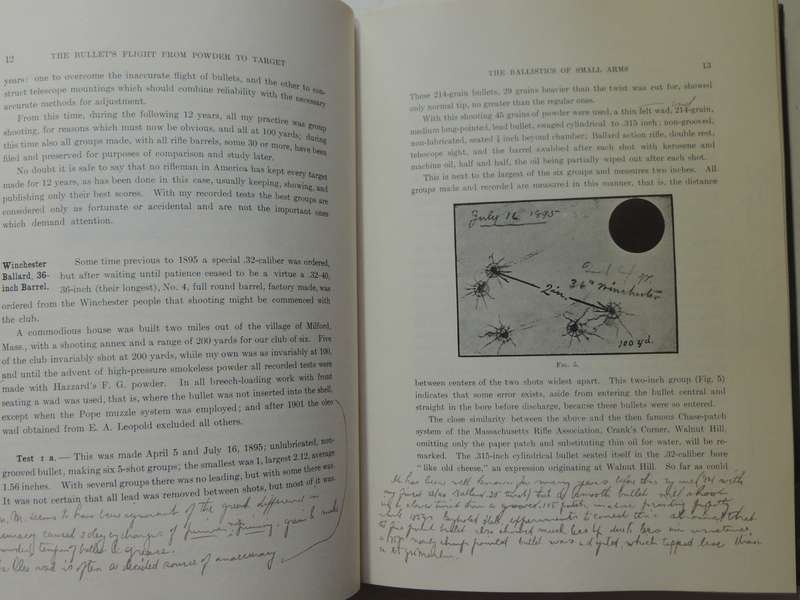 12 THE BULLET'S FLIGHT FROM POWDER TO TARGET
years: one to overcome the inaccurate flight of bullets, and the other to con-
struct telescope mountings which should combine reliability with the necessary
accurate methods for adjustment.
From this time, during the following 12 years, all my practice was group
shooting, for reasons which must now be obvious, and all at 100 yards; during
this time also all groups made, with all rifle barrels, some 30 or more, have been
filed and preserved for purposes of comparison and study later.
No doubt it is safe to say that no rifleman in America has kept every target
made for 12 years, as has been done in this case, usually keeping, showing, and
publishing only their best scores. With my recorded tests the best groups are
considered only as fortunate or accidental and are not the important ones
which demand attention.
Winchester
Ballard, 36-
inch Barrel.
Some time previous to 1895 a special .32-caliber was ordered,
but after waiting until patience ceased to be a virtue a .32-40,
36-inch (their longest), No. 4, full round barrel, factory made, was
ordered from the Winchester people that shooting might be commenced with
the club.
A commodious house was built two miles out of the village of Milford,
Mass., with a shooting annex and a range of 200 yards for our club of six. Five
of the club invariably shot at 200 yards, while my own was as invariably at 100,
and until the advent of high-pressure smokeless powder all recorded tests were
made with Hazzard's F. G. powder. In all breech-loading work with front
seating a wad was used, that is, where the bullet was not inserted into the shell,
except when the Pope muzzle system was employed; and after 1901 the oleo
wad obtained from E. A. Leopold excluded all others.
Test 1 a. — This was made April 5 and July 16, 1895; unlubricated, non-
grooved bullet, making six 5-shot groups; the smallest was 1, largest 2.12, average
1.56 inches. With several groups there was no leading, but with some there was.
It was not certain that all lead was removed between shots, but most of it was.
seems to have been ignorant of the great difference in
accuracy caused by changes of priming, grain & make
powder, temper of bullet & grease.
wad is often a decided source of inaccuracy
THE BALLISTICS OF SMALL ARMS 13
These 214-grain bullets, 29 grains heavier than the twist was cut for, showed
only normal tip, no greater than the regular ones.
With this shooting 45 grains of powder were used, a thin felt wad, 214-grain,
medium long-pointed, lead bullet, swaged cylindrical to .315 inch; non-grooved,
non-lubricated, seated ¼ inch beyond chamber; Ballard action rifle, double rest;
telescope sight, and the barrel swabbed after each shot with kerosene and
machine oil, half and half, the oil being partially wiped out after each shot.
This is next to the largest of the six groups and measures two inches. All
groups made and recorded are measured in this manner, that is, the distance
July 16 1895
36" Winchester
2 in.
100 yd.
FIG. 5.
between centers of the two shots widest apart. This two-inch group (Fig. 5)
indicates that some error exists, aside from entering the bullet central and
straight in the bore before discharge, because these bullets were so entered.
The close similarity between the above and the then famous Chase-patch
system of the Massachusetts Rifle Association, Crank's Corner, Walnut Hill,
omitting only the paper patch and substituting thin oil for water, will be re-
marked. The .315-inch cylindrical bullet seated itself in the .32-caliber bore
"like old cheese," an expression originating at Walnut Hill. So far as could
It has been well known for many years before this
that a smooth bullet will shoot
than a grooved
experiments to
bullet was adopted which tipped less than